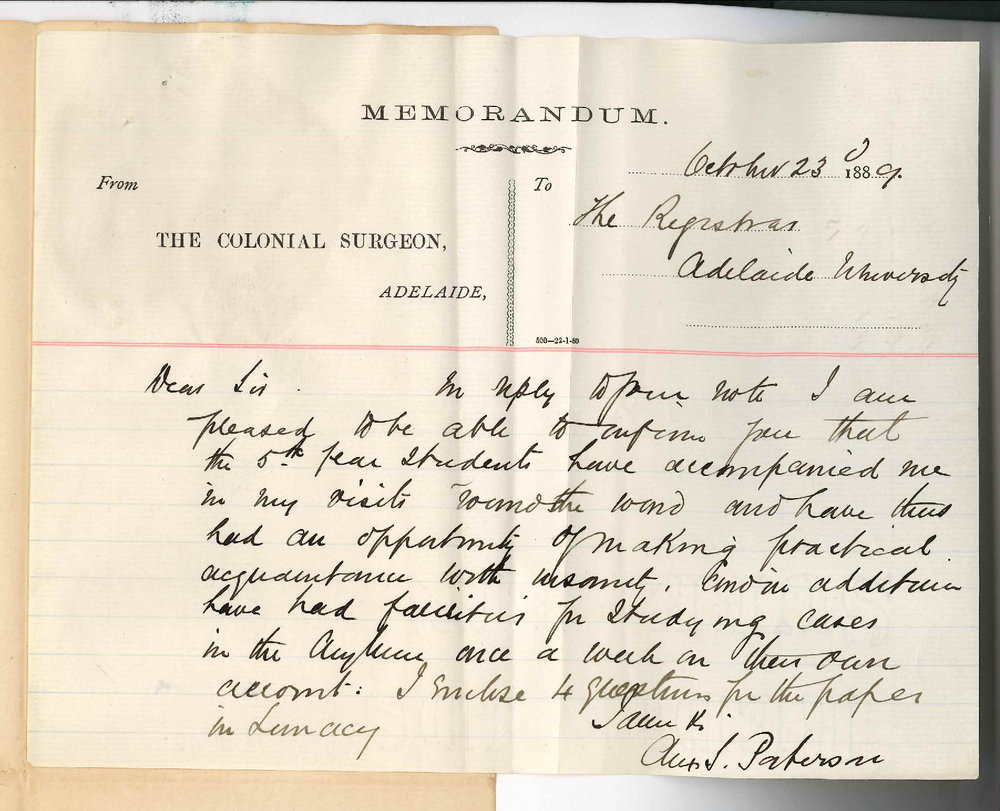 MEMORANDUM.
October 23 1889.
From
To
The Registrar
THE COLONIAL SURGEON,
Adelaide University
ADELAIDE,
500—22-1-89
Dear Sir. In reply to your note I am
pleased to be able to inform you that
the 5th year Students have accompanied me
in my visits round the ward and have thus
had an opportunity of making practical
acquaintance with insanity, and in addition
have had facilities for Studying cases
in the Asylum once a week on their own
account: I enclose 4 questions for the paper
in Lunacy
I am
Alex S. Paterson